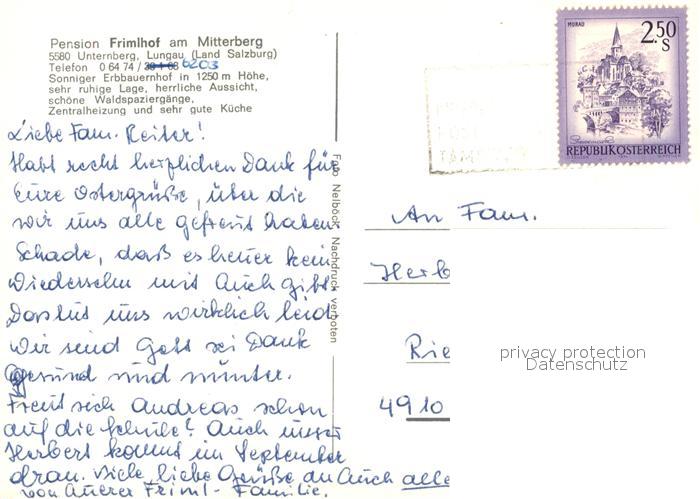 Pension Frimlhof am Mitterberg
5580 Unternberg, Lungau (Land Salzburg)
Telefon 0 64 74 / 6203
Sonniger Erbbauernhof in 1250 m Höhe,
sehr ruhige Lage, herrliche Aussicht,
schöne Waldspaziergänge,
Zentralheizung und sehr gute Küche
Liebe Fam. Reiter!
Habt recht herzlichen Dank für
Eure Ostergrüße, über die
wir uns alle gefreut haben.
Schade, daß es heuer kein
Wiedersehn mit Auch gibt.
Das tut uns wirklich leid
Wir sind Gott sei Dank
gesund und munter.
Freut sich Andreas schon
auf die Schule? Auch unser
Herbert kommt im September
dran. Viele liebe Grüße an Auch alle
von Auerer Friml-Familie.
Foto Nelböck, Nachdruck verboten
MURAU
2.50
S
REPUBLIK ÖSTERREICH
An Fam.
Herb
Rie
4910
privacy protection
Datenschutz